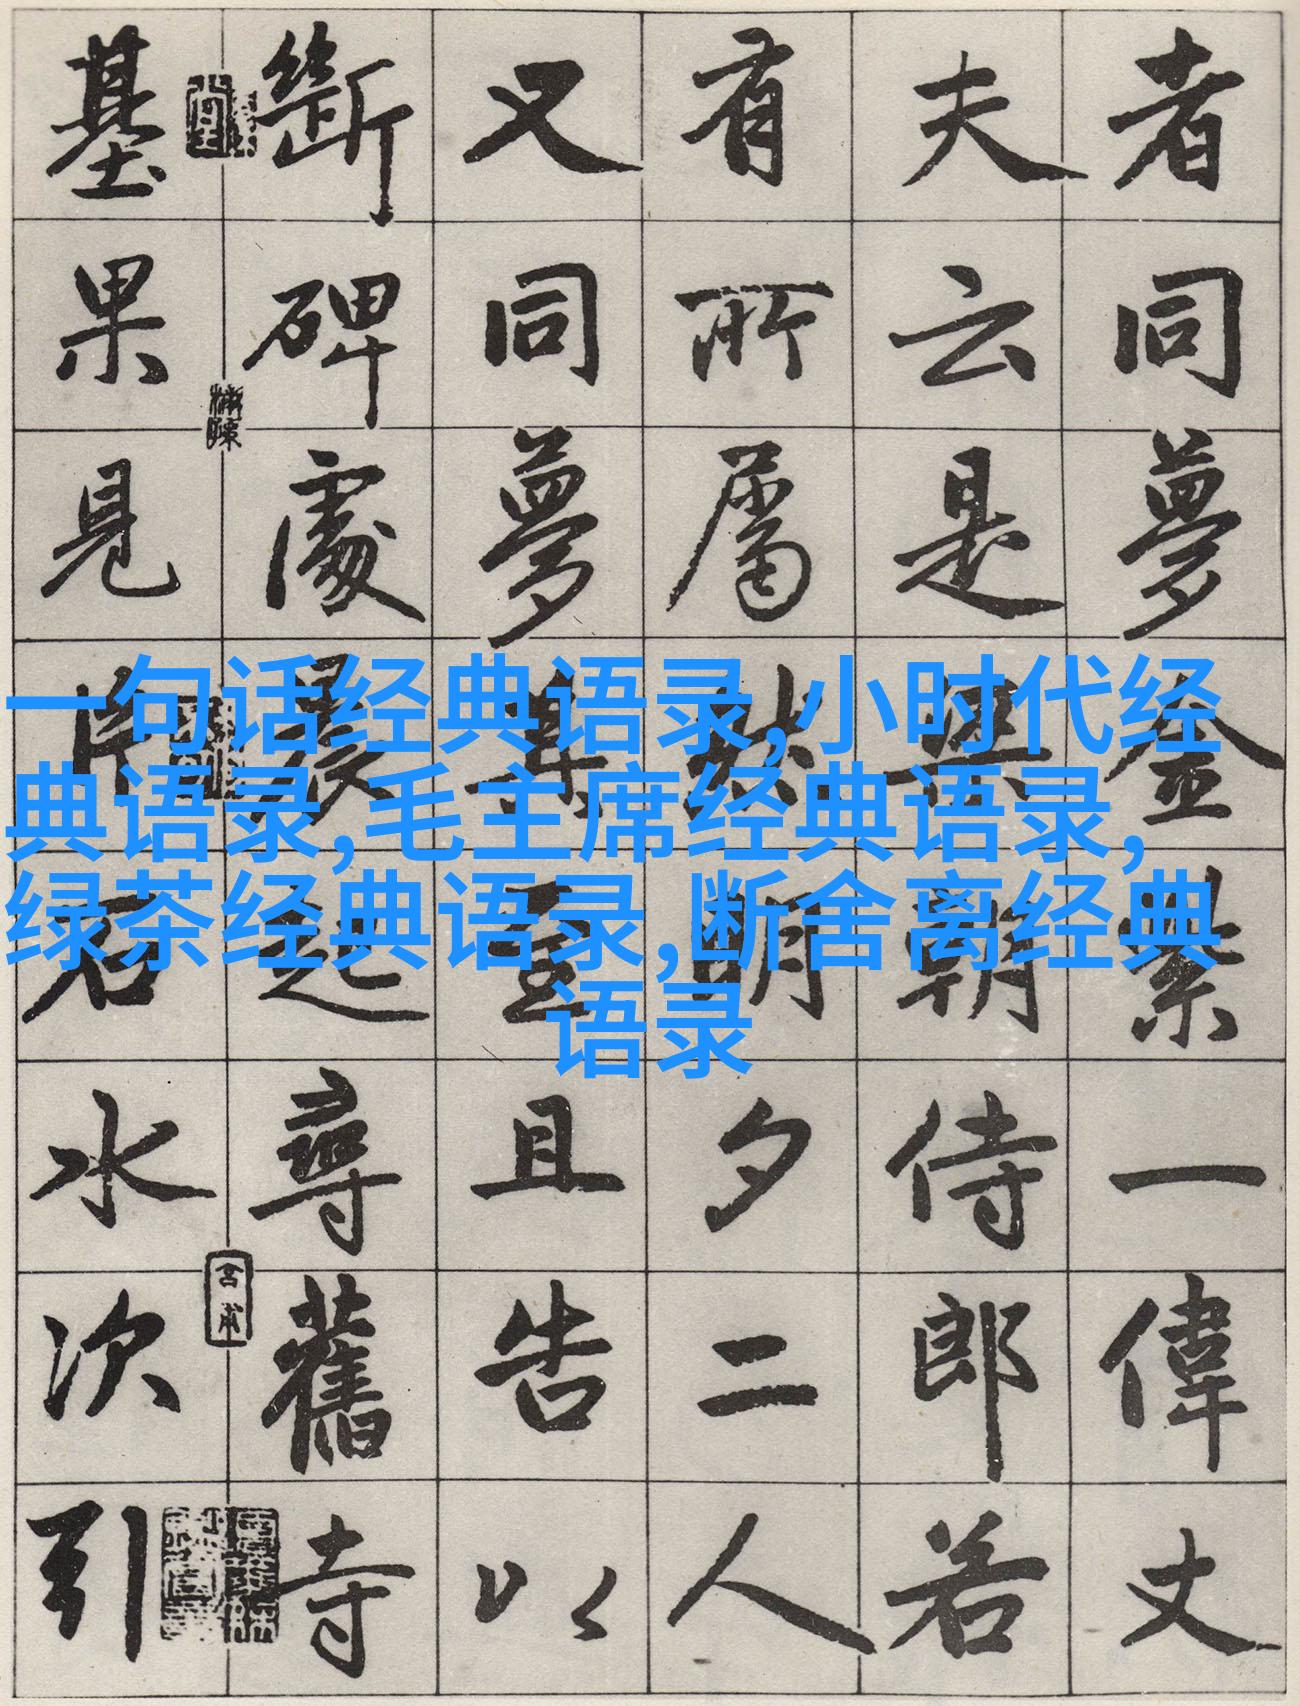 者同夢金紫一偉丈
夫云是與朝侍郎若
有所屬然明夕二人
又同夢且告以
斷碑處晨起尋舊寺
基果見片石水次引
一句话经典语录,小时代经
典语录,毛主席经典语录,
绿茶经典语录,断舍离经典
语录